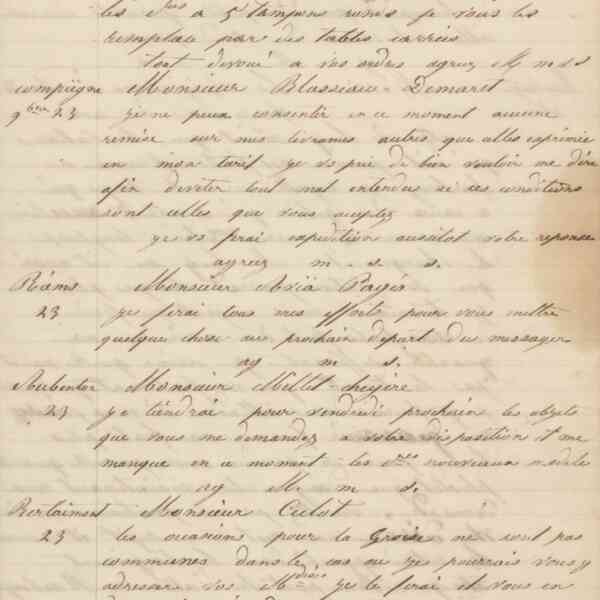 les à 5 tampons je vous les
remplace par des tables carrees
tout devoué a vos ordres agreez M m s s
compiegne Monsieur Blassiau-Demaret
9bre 23 je ne peux consentir en ce moment aucune
remise sur mes livrames autres que celles exprimée
en mon tarif je vs prie de bien vouloir me dire
afin deviter tout mal entendus si ces conditions
sont celles que vous acceptez
je vs ferai expedition aussitot votre reponse
agreez m . s . s.
Reims Monsieur Pagés
23 je ferai tous mes efforts pour vous mettre
quelque chose au prochain depart du messager
ag m s.
Aubenton Monsieur Millet-
23 je tiendrai pour vendredi prochain les objets
que vous me demandez a votre disposition il me
manque en ce moment les nouveaux modele
ag M. m s.
Monsieur Culot
23 les ocasions pour la Groise ne sont pas
communes dans le cas ou je pourrais vous y
adresser vos je le ferai et vous en